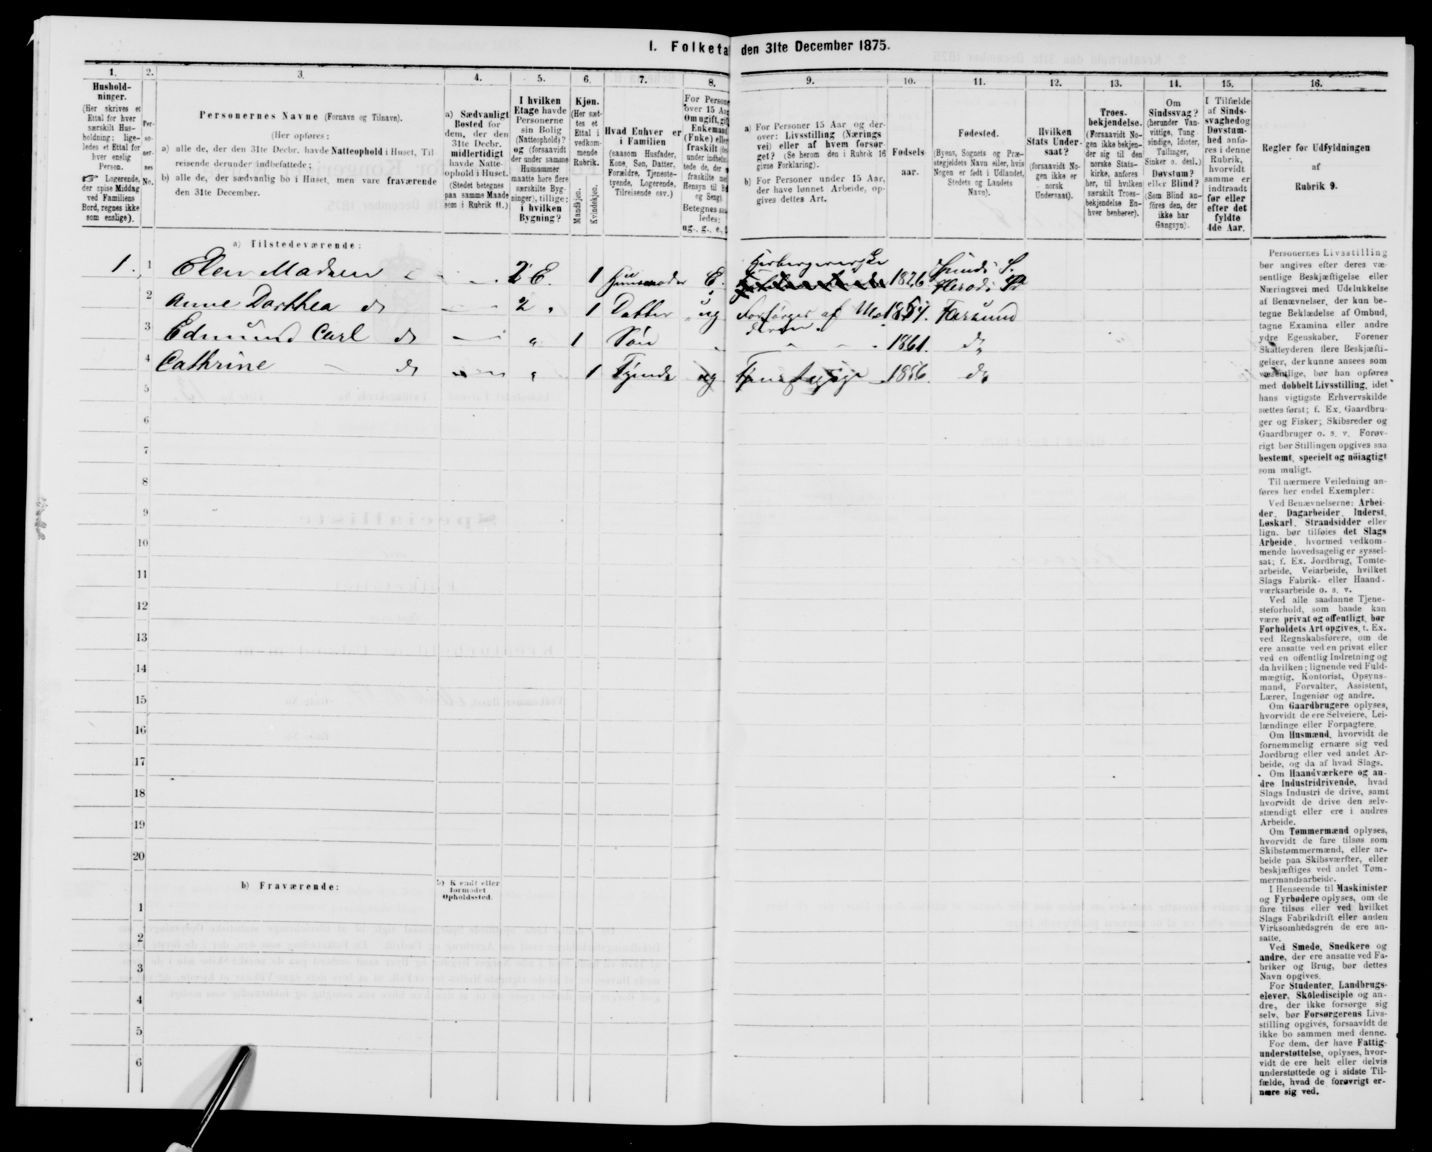 1. Folketa den 31te December 1875.
1.
Hushold-
ninger.
(Her skrives et
Ettal for hver
særskilt Hus-
holdning; lige-
ledes et Ettal for
hver enslig
Person.
Logerende,
der spise Middag
ved Familiens
Bord, regnes ikke
som enslige).
2.
Per-
so-
ner-
nes
No.
3.
Personernes Navne (Fornavn og Tilnavn).
(Her opføres:
a) alle de, der den 31te Decbr. havde Natteophold i Huset, Til-
reisende derunder indbefattede;
b) alle de, der sædvanlig bo i Huset, men vare fraværende
den 31te December.
4.
a) Sædvanligt
Bosted for
dem, der den
31te Decbr.
midlertidigt
havde Natte-
ophold i Huset.
(Stedet betegnes
paa samme Maade
som i Rubrik 11.)
5.
I hvilken
Etage havde
Personerne
sin Bolig
(Natteophold)
og (forsaavidt
der under samme
Husnummer
maatte høre flere
særskilte Byg-
ninger), tillige:
i hvilken
Bygning?
6.
Kjøn.
(Her sæt-
tes et
Ettal i
vedkom-
mende
Rubrik.
Mandkjøn.
Kvindekjøn.
7.
Hvad Enhver er
i Familien
(saasom Husfader,
Kone, Søn, Datter,
Forældre, Tjeneste-
tyende, Logerende,
Tilreisende osv.)
8.
For Persone
over 15 Aar
Om ugift, gif
Enkemand
(Enke) eller
fraskilt
9.
a) For Personer 15 Aar og der-
over: Livsstilling (Nærings
vei) eller af hvem forsør
get? (Se herom den i Rubrik 16
givne Forklaring).
b) For Personer under 15 Aar,
der have lønnet Arbeide, op-
gives dettes Art.
10.
Fødsels-
aar.
11.
Fødested.
(Byens, Sognets og Præ-
stegjeldets Navn eller, hvis
Nogen er født i Udlandet,
Stedets og Landets
Navn).
12.
Hvilken
Stats Under-
saat?
(forsaavidt No-
gen ikke er
norsk
Undersaat).
13.
Troes-
bekjendelse.
(Forsaavidt No-
gen ikke bekjen-
der sig til den
norske Stats-
kirke, anføres
her, til hvilken
særskilt Troes-
bekjendelse En-
hver henhører).
14.
Om
Sindssvag?
(herunder Van-
vittige, Tung
sindige, Idioter,
Tullinger,
Sinker o. desl.)
Døvstum?
eller Blind?
(Som Blind an-
føres den, der
ikke har
Gangsyn).
15.
I Tilfælde
af Sinds-
svaghed og
Døvstum-
hed anfø-
res i denne
Rubrik,
hvorvidt
samme er
indtraadt
før eller
efter det
fyldte
4de Aar.
16.
Regler for Udfyldningen
af
Rubrik 9.
a) Tilstedeværende:
1. 1 Elen Madsen 2 E. 1 E. 1826
2 Anne Dorthea do 2 " 1 Datter ug Forsørges af Mo- 1854. Farsund
deren
3 Edmund Carl do " 1 Søn 1861. do
4 Cathrine do " 1 Tjende ug 1856. do
5
6
7
8
9
10
11
12
13
14
15
16
17
18
19
20
b) Fraværende:
b) Kjendt eller
formodet
Opholdssted.
1
2
3
4
5
6
Personernes Livsstilling
bør angives efter deres væ-
sentlige Beskjæftigelse eller
Næringsvei med Udelukkelse
af Benævnelser, der kun be-
tegne Beklædelse af Ombud,
tagne Examina eller andre
ydre Egenskaber. Forener
Skatteyderen flere Beskjæfti-
gelser, der kunne ansees som
væsentlige, bør han opføres
med dobbelt Livsstilling, idet
hans vigtigste Erhvervskilde
sættes først; f. Ex. Gaardbru-
ger og Fisker; Skibsreder og
Gaardbruger o. s. v. Forøv-
rigt bør Stillingen opgives saa
bestemt, specielt og nøiagtigt
som muligt.
Til nærmere Veiledning an-
føres her endel Exempler:
Ved Benævnelserne: Arbei-
der, Dagarbeider, Inderst,
Løskarl, Strandsidder eller
lign. bør tilføies det Slags
Arbeide, hvormed vedkom-
mende hovedsagelig er syssel-
sat; f. Ex. Jordbrug, Tomte-
arbeide, Veiarbeide, hvilket
Slags Fabrik- eller Haand-
værksarbeide o. s. v.
Ved alle saadanne Tjene-
steforhold, som baade kan
være privat og offentligt, bør
Forholdets Art opgives, f. Ex.
ved Regnskabsførere, om de
ere ansatte ved en privat eller
ved en offentlig Indretning og
da hvilken; lignende ved Fuld-
mægtig, Kontorist, Opsyns-
mand, Forvalter, Assistent,
Lærer, Ingeniør og andre.
Om Gaardbrugere oplyses,
hvorvidt de ere Selveiere, Lei-
lændinge eller Forpagtere.
Om Husmænd, hvorvidt de
fornemmelig ernære sig ved
Jordbrug eller ved andet Ar-
beide, og da af hvad Slags.
Om Haandværkere og an-
dre Industridrivende, hvad
Slags Industri de drive, samt
hvorvidt de drive den selv-
stændigt eller ere i andres
Arbeide.
Om Tømmermænd oplyses,
hvorvidt de fare tilsøs som
Skibstømmermænd, eller ar-
beide paa Skibsværfter, eller
beskjæftiges ved andet Tøm-
mermandsarbeide.
I Henseende til Maskinister
og Fyrbødere oplyses, om de
fare tilsøs eller ved hvilket
Slags Fabrikdrift eller anden
Virksomhedsgren de ere an-
satte.
Ved Smede, Snedkere og
andre, der ere ansatte ved Fa-
briker og Brug, bør dettes
Navn opgives.
For Studenter, Landbrugs-
elever, Skoledisciple og an-
dre, der ikke forsørge sig
selv, bør Forsørgerens Livs-
stilling opgives, forsaavidt de
ikke bo sammen med denne.
For dem, der have Fattig-
understøttelse, oplyses, hvor-
vidt de ere helt eller delvis
understøttede og i sidste Til-
fælde, hvad de forøvrigt er-
nære sig ved.